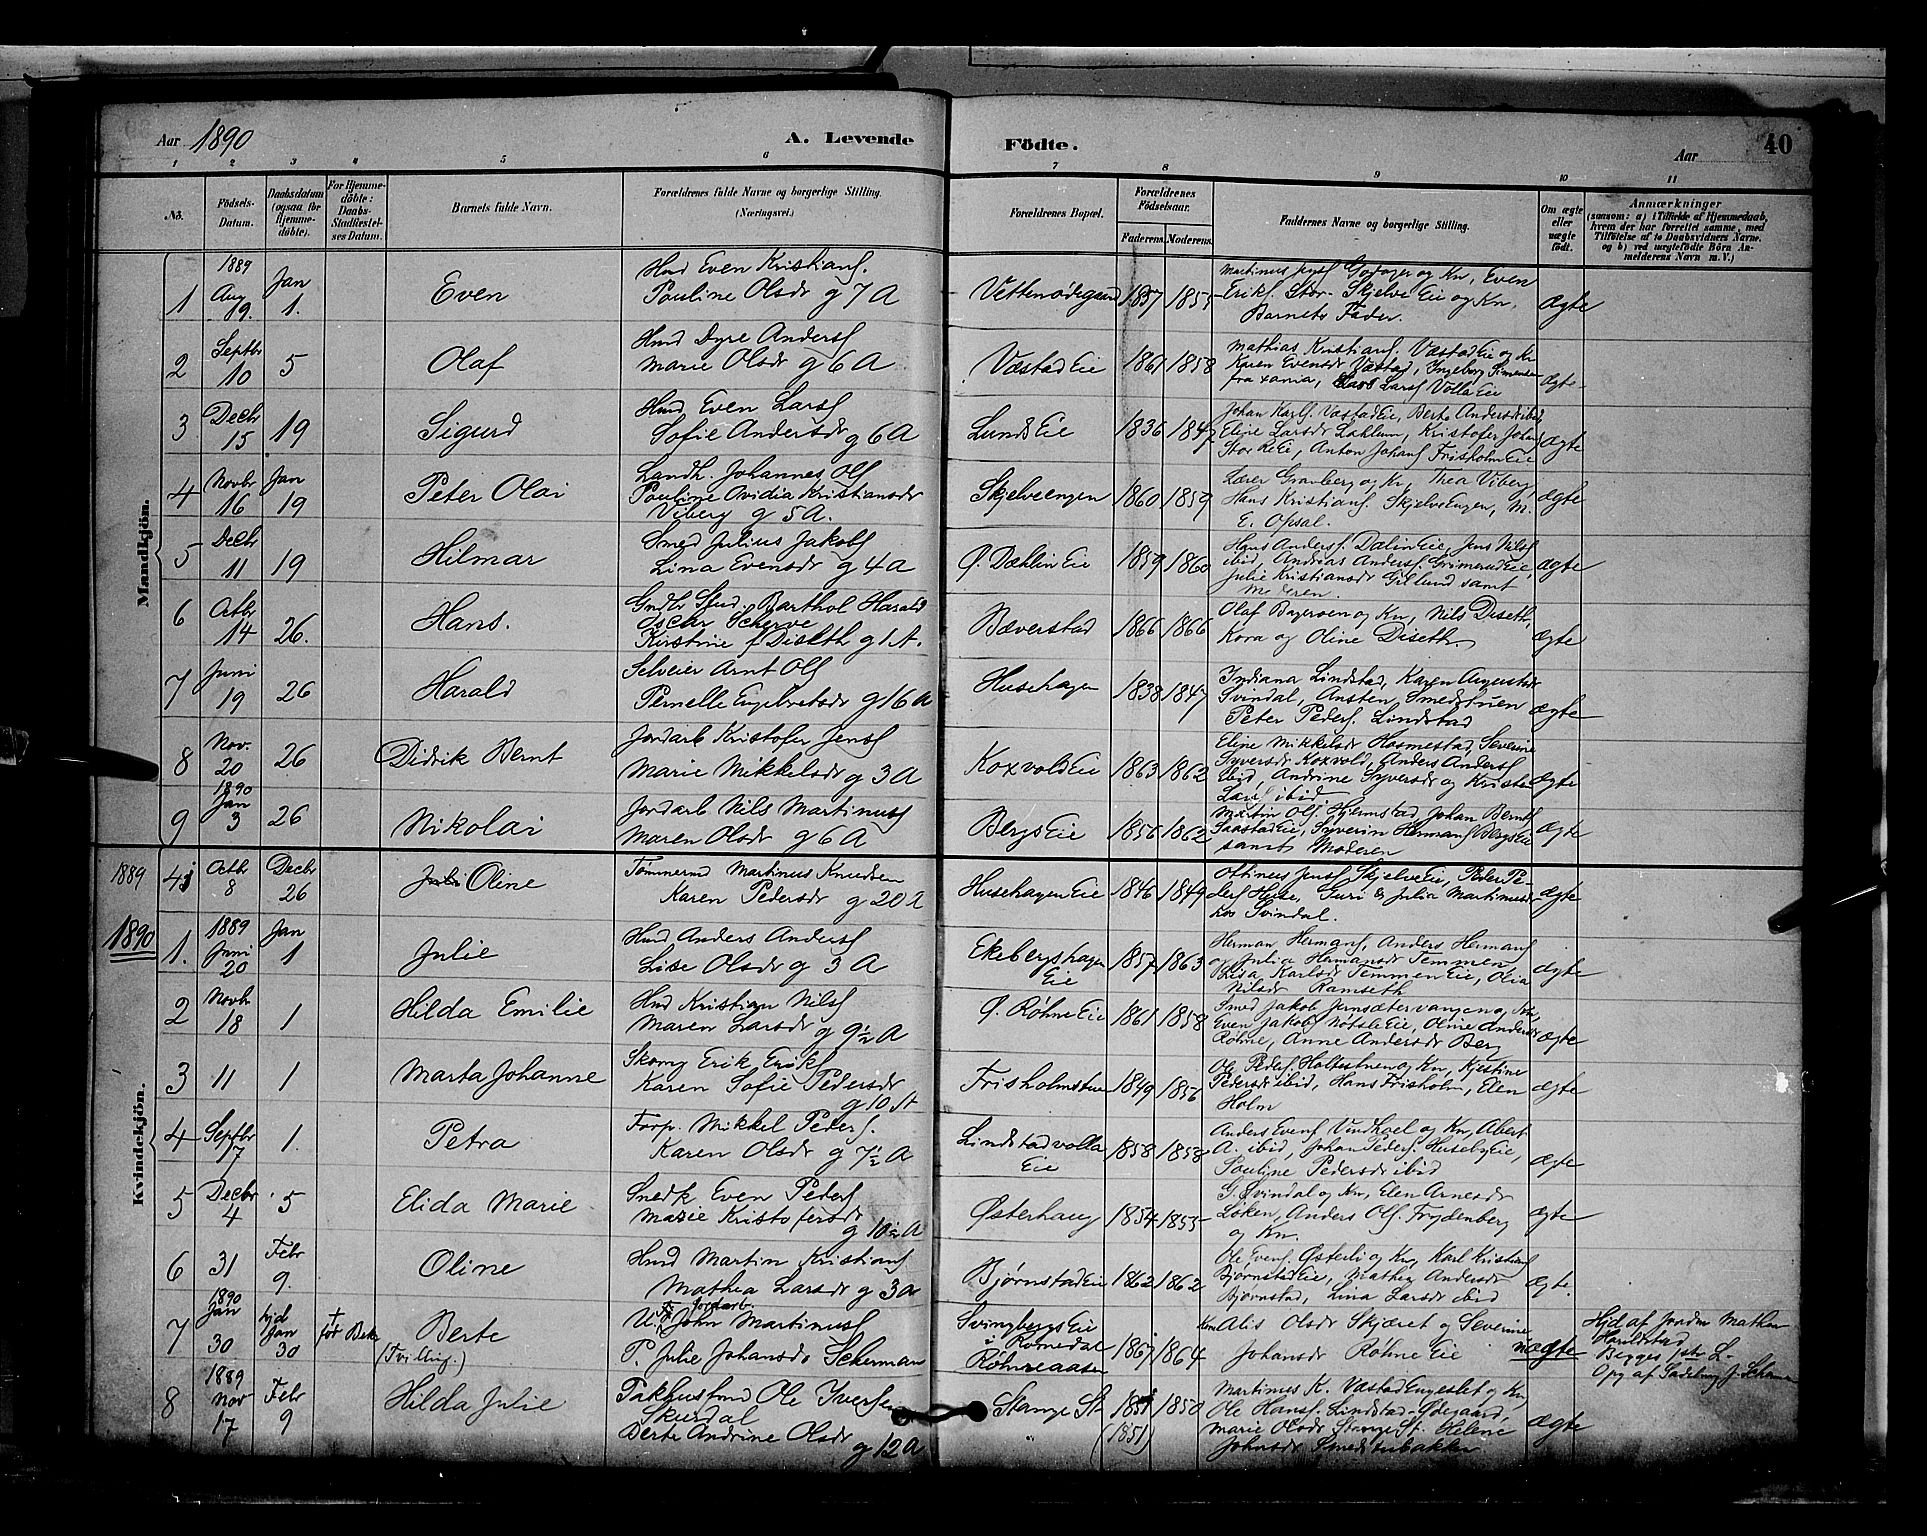 Aar 1890
A. Levende Födte.
Aar 40
1 2 3 4 5 6 7 8 9 10 11
No.
Födsels-Datum.
Daabsdatum (ogsaa for Hjemme-döbte).
For Hjemme-döbte: Daabs-Stadfæstel-ses Datum.
Barnets fulde Navn.
Forældrenes fulde Navne og borgerlige Stilling.
(Næringsvei.)
Forældrenes Bopæl.
Forældrenes Födselsaar.
Faderens. Moderens.
Faddernes Navne og borgerlige Stilling.
Om ægte eller uægte födt.
Anmærkninger
(saasom: a) i Tilfælde af Hjemmedaab, hvem der har forrettet samme, med Tilföielse af to Daabsvidners Navne. og b) ved uægtefödte Börn An-melderens Navn m. V.)
Mandkjön.
1 1889 Aug 19. Jan 1. Even
Hmd Even Kristians.
Pauline Olsdr g 7 A
1857 1855
Martinus Jens
Eriks. Stor-Skjelve Eie og Kn,
Barnets Fader.
Ægte
2 Septbr 10 5 Olaf
Hmd Dyre Anders
Marie Olsdr g 6 A
Væstad Eie 1861 1858
Mathias Kristians. Væstad Eie og Kn
Karen Evensdr Væstad, Ingeborg Simensen
fra Xania, Lars Larss Volla Eie
Ægte
3 Decbr 15 19 Sigurd
Hmd, Even Lars
Sofie Andersdr g 6 A
Lunds Eie 1836 1847
Johan Karls. Væstad Eie, Berte Andersdr ibid
Eline Larsdr Lahlum, Kristofer Johans
Stor Re Eie, Anton Johans Frisholm Eie
Ægte
4 Novbr 16 Jan 19 Peter Olai
Landh. Johannes Ols
Pauline Avidia Kristiansdr
Viberg g 5 A.
Skjelveengen 1860 1859
Lærer Granberg og Kn, Thea Viberg,
Hans Kristians. Skjelve Engen, M.
E. Opsal.
Ægte
5 Decbr 11 19 Hilmar
Smed Julius Jakobs
Lina Evensdr g 4 A
Ø. Dæhlin Eie 1859 1860
Hans Anders. Dalin Eie, Jens Nils
ibid, Andreas Anders. Grimerud Eie,
Julie Kristiansdr Gillund samt
Moderen.
Ægte
6 Octbr 14 26. Hans.
Barthol Harald
Oscar Scherve
Kristine f Diseth g 1 A.
Bæverstad 1866 1866
Olaf Bryeroen og Kn, Nils Diseth,
Kora og Oline Diseth.
Ægte
7 Juni 19 26 Harald
Selveier Arnt Ols
Pernelle Engebretsdr g 16 A
Husehagen 1838 1847
Indiana Lindstad, Karen Augustadr
Svindal, Austen Smedstuen
Peter Peders. Lindstad
Ægte
8 Nov. 20 26 Didrik Bernt
Jordarb Kristofer Jens
Marie Mikkelsdr g 3 A
Koxvold Eie 1863 1862
Eline Mikkelsdr Hosmestad, Severine
Syversdr Koxvold, Anders Anders
ibid, Andrine Syversdr og
Lars ibid.
Ægte
9 1890 Jan 3 26 Nikolai
Jordarb Nils Martinus
Maren Olsdr g 6 A
Bergs Eie 1856 1862
Martin Ols. Hjelmstad, Johan Bernt
Saastad Eie, Syverin Hermans Bergs Eie
samt Moderen
Ægte
Kvindekjön.
1889 Octbr 8 Decbr 26 Oline
Tømmermd Martinus Knudsen
Karen Pedersdr g 20 A
Husehagen Eie 1846 1849
Othinus Jens Skjelve Eie, Peder Pe-
ders Huse, Guri & Julia Martinusdr
hos Svindal.
Ægte
1890
1. 1889 Juni 20 Jan 1 Julie
Hmd Anders Anders
Lise Olsdr g 3 A
Ekebergshagen Eie 1857 1863
Herman Hermans, Anders Hermans
og Julia Hermansdr Temmen,
Lisa Karlsdr Temmen Eie, Olia
Nilsdr Ramseth
Ægte
2 Novbr 18 1 Hilda Emilie
Hmd Kristian Nils
Maren Larsdr g 9½ A
Ø. Røhne Eie 1861 1858
Smed Jakob Jernsætervangen og Kn,
Even Jakobs Nøtsle Eie, Oline Andersdr
Røhne, Anne Andersdr Berg
Ægte
3 11 1 Marta Johanne
Skomg Erik Eriks
Karen Sofie Pedersdr
g 10 A
Frisholmstuen 1849 1856
Ole Peders. Holtestuen og Kn, Kjestine
Pedersdr ibid, Hans Frisholm, Elen
Holm
Ægte
4 Septbr 17 1. Petra
Forp. Mikkel Peders.
Karen Olsdr g 7½ A
Lindstadvolla Eie 1858 1858
Anders Evens Vindkoel og Kn, Abert
A. ibid, Johan Peders. Huseby Eie,
Pauline Pedersdr ibid
Ægte
5 Decbr 4 5 Elida Marie
Snedk Even Peders
Marie Kristofersdr
g 10½ A
Østerhaug 1854 1855
G. Svindal og Kn, Elen Arnesdr
Løken, Anders Ols. Frydenberg
og Kn.
Ægte
6 31 Febr 9. Oline
Hmd Martin Kristians
Mathea Larsdr g 3 A
Bjørnstad Eie 1862 1862
Ole Evens Østerli og Kn, Karl Kristians
Bjørnstad Eie, Mathea Andersdr
Bjørnstad, Lina Larsdr ibid
Ægte.
7 1890 Jan 30 hjd Jan 30 † før Bekr Berte
(Tvilling.)
Jordarb.
John Martinus
P. Julie Johansdr Scherman
Svingbergs Eie
i Romedal
Røhneaasen
1867 1864
Kone Alis Olsdr Skjæret og Severine
Johansdr Røhne Eie
uægte
Hjd af Jordm Mathea
Haraldstad
Begges 1ste L.
Opg af J. Scherman
8 1889 Nov 17 Febr 9 Hilda Julie
Pakhusfmd Ole Iversen
Skurdal
Berte Andrine Olsdr
g 12 A
Stange St. 1851 1850
" (1851)
Martinus K. Væstad Engeslet og Kn,
Ole Hans. Lindstad-Ødegaard,
Marie Olsdr Stange St. Helene
Johnsdr Smedstubakken
Ægte